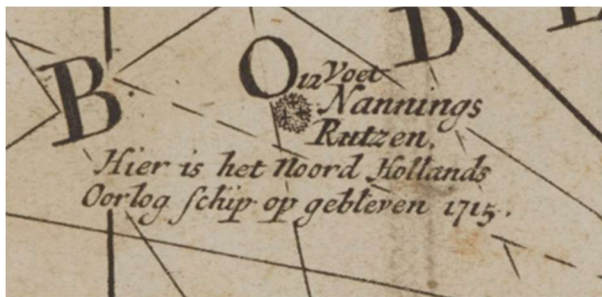 B O D
12 Voet
Nannings
Rutzen.
Hier is het Noord Hollands
Oorlog schip op gebleven 1715.